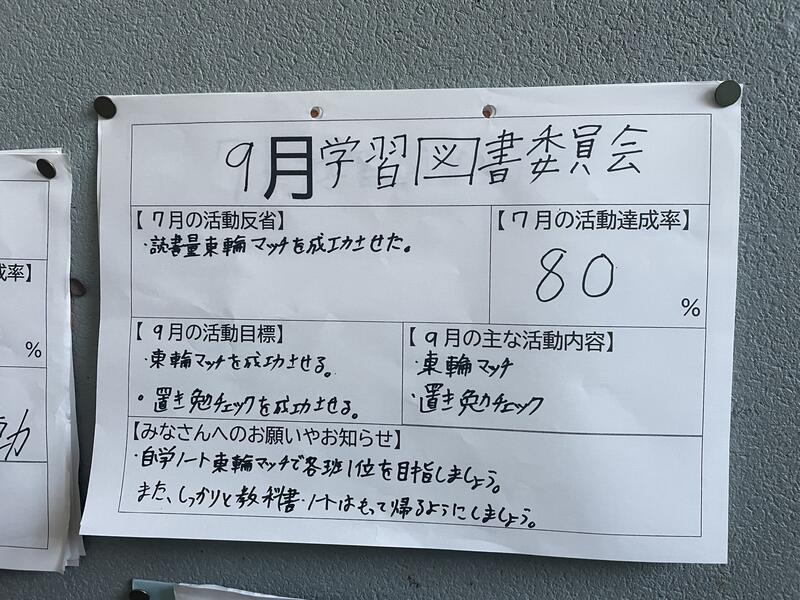 9月学習図書委員会
【7月の活動反省】
・読書量東輪マッチを成功させた。
【7月の活動達成率】
80
%
【9月の活動目標】
・東輪マッチを成功させる。
・置き勉チェックを成功させる。
【9月の主な活動内容】
・東輪マッチ
・置き勉チェック
【みなさんへのお願いやお知らせ】
・自学ノート東輪マッチで各班1位を目指しましょう。
また、しっかりと教科書・ノートはもって帰るようにしましょう。
成率】
%
動